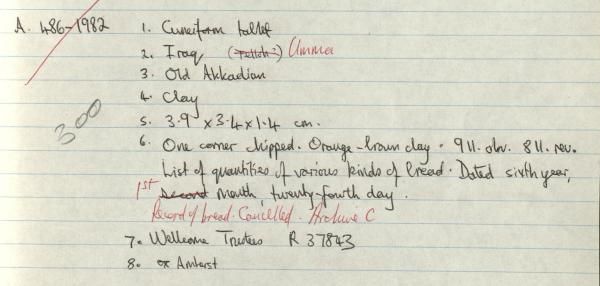 A. 486-1982 1. Cuneiform tablet
2. Iraq (Telloh?) Umma
3. Old Akkadian
4. Clay
300
5. 3.9 x 3.4 x 1.4 cm.
6. One corner chipped. Orange-brown clay. 9 ll. obv. 8 ll. rev.
List of quantities of various kinds of bread. Dated sixth year,
1st second month, twenty-fourth day.
Record of bread. Cancelled. Archive C
7. Wellcome Trustees R 37843
8. ex Amherst